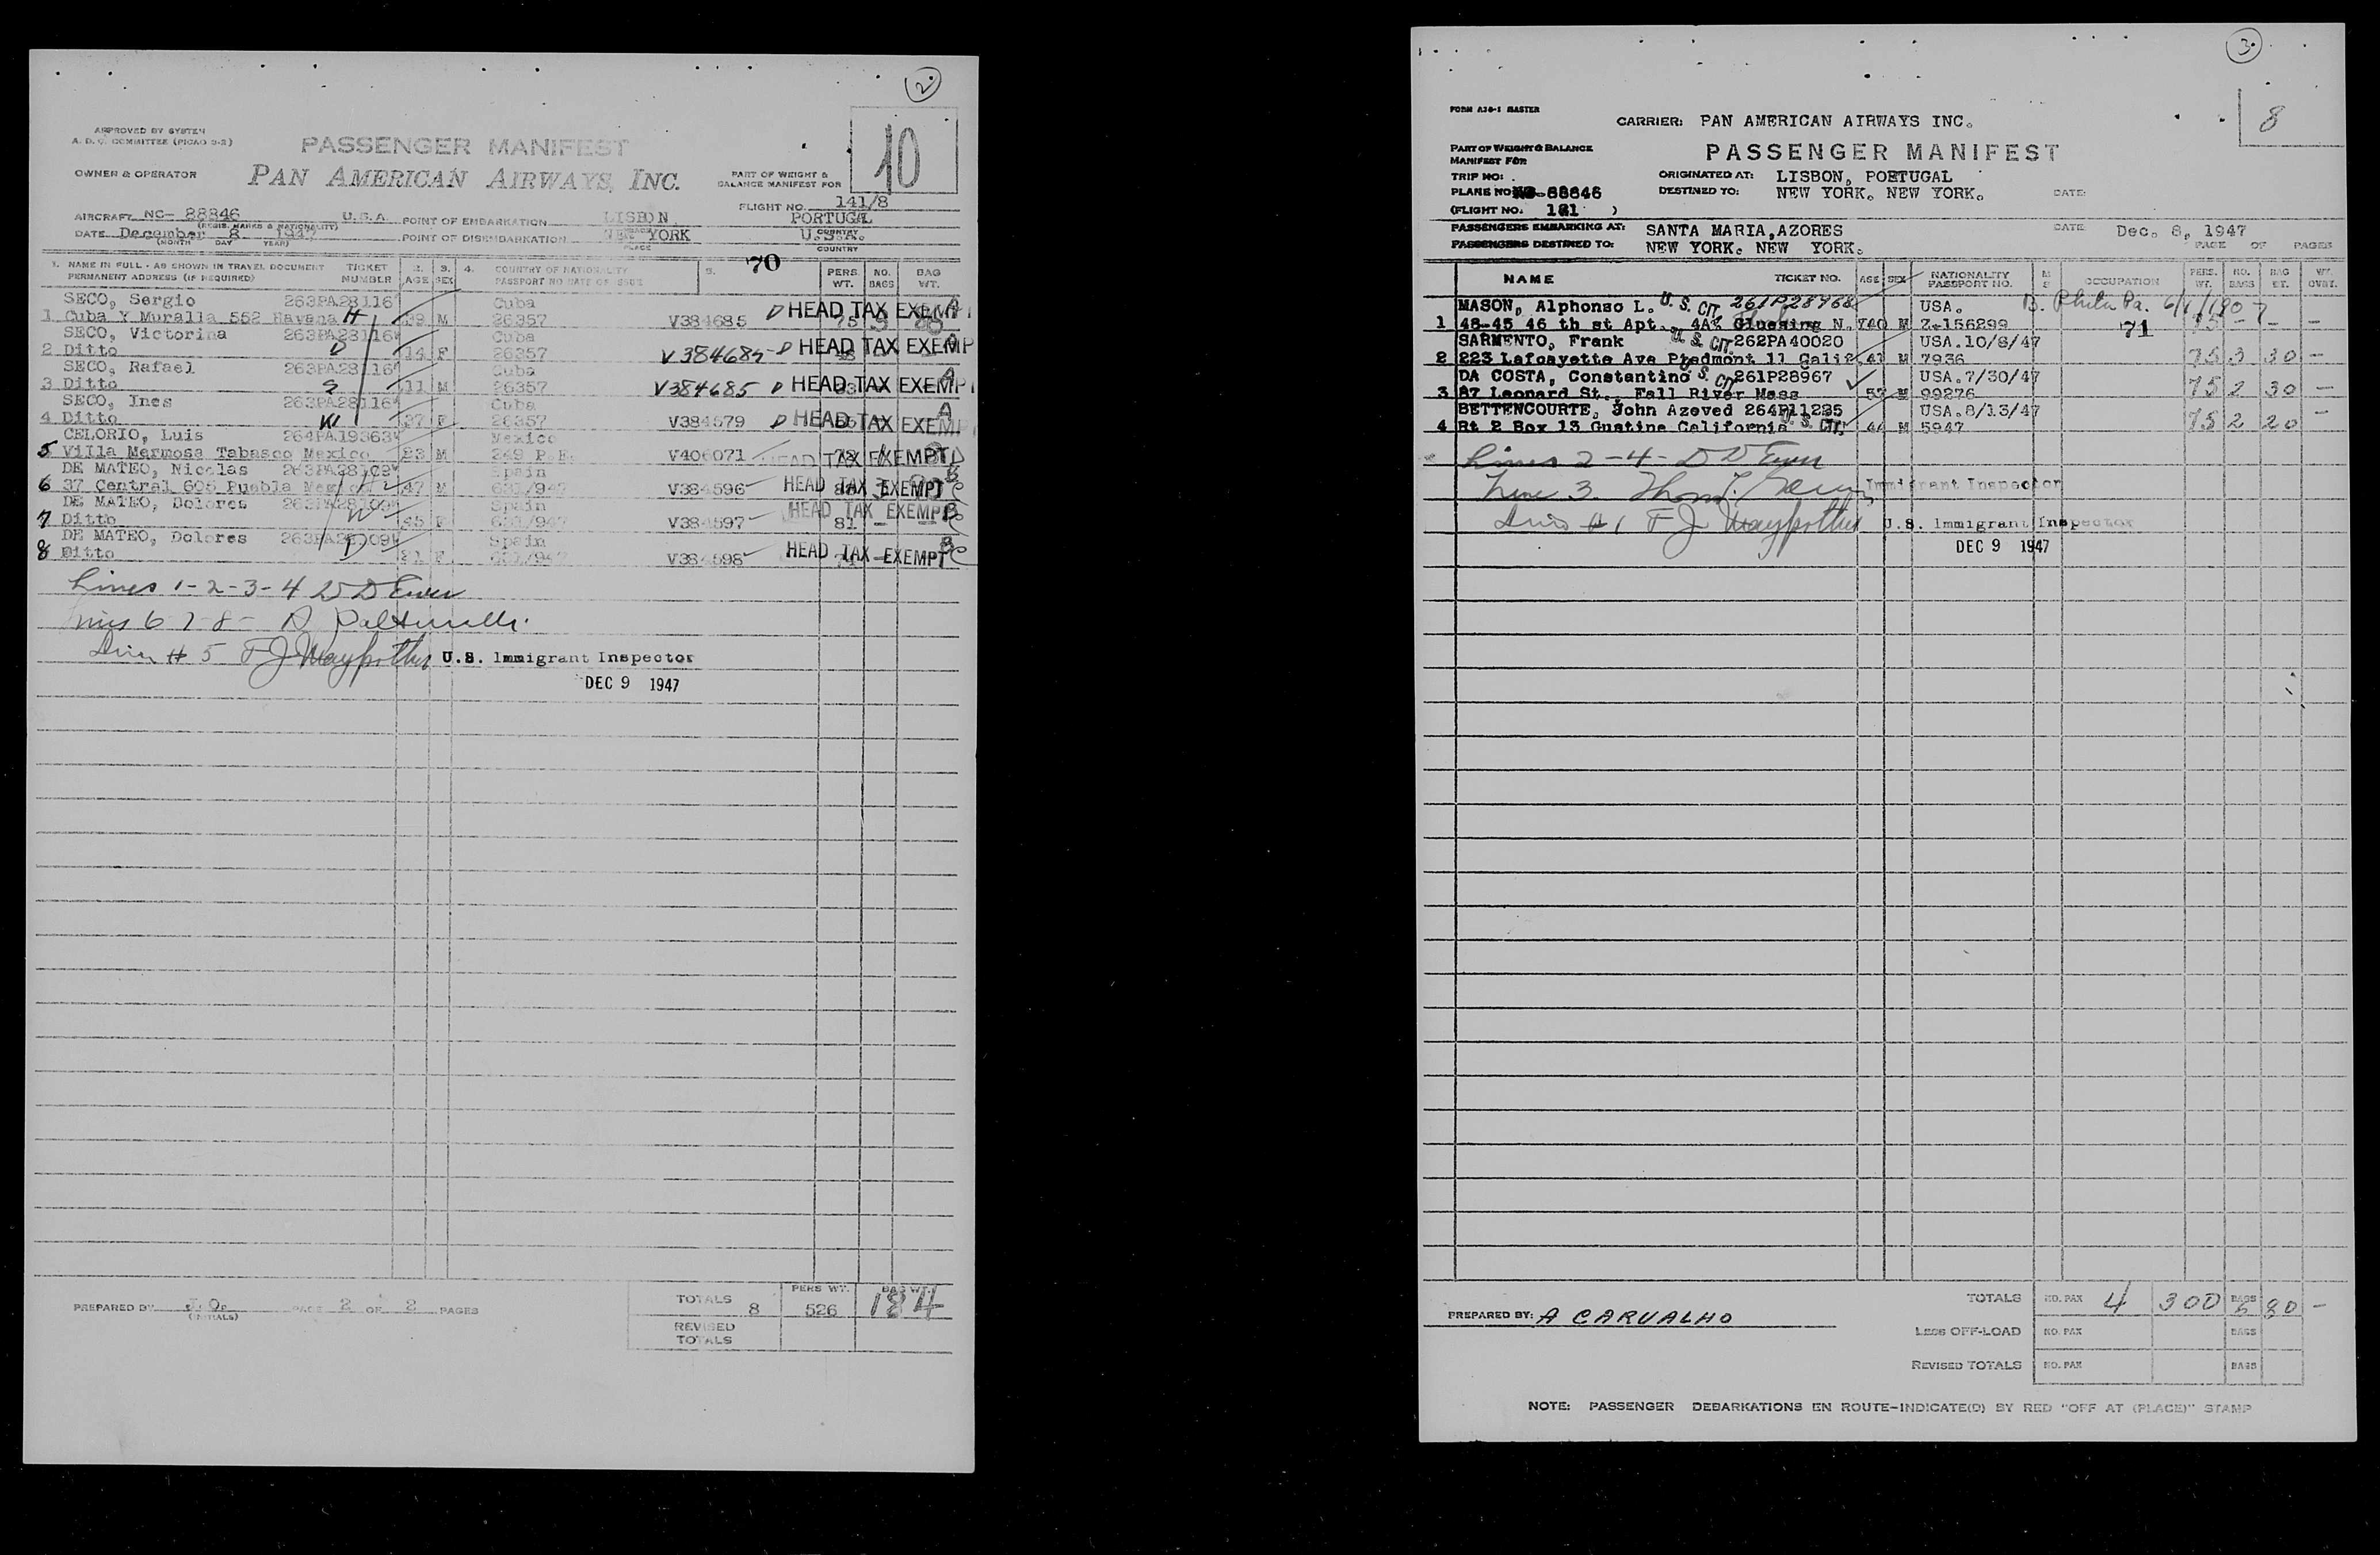 2.
APPROVED BY SYSTEM
A. D. C. COMMITTEE (PICAO 3-2)
PASSENGER MANIFEST
10
OWNER & OPERATOR
PAN AMERICAN AIRWAYS, INC.
PART OF WEIGHT &
BALANCE MANIFEST FOR
FLIGHT NO. 141/8
AIRCRAFT NC- 88846 U.S.A. POINT OF EMBARKATION LISBON PORTUGAL
(REGIS. MARKS & NATIONALITY) PLACE COUNTRY
DATE December 8 1947 POINT OF DISEMBARKATION NEW YORK U.S.A.
(MONTH DAY YEAR) PLACE COUNTRY
70
1. NAME IN FULL - AS SHOWN IN TRAVEL DOCUMENT TICKET 2. 3. 4. COUNTRY OF NATIONALITY 5. PERS NO. BAG
PERMANENT ADDRESS (IF REQUIRED) NUMBER AGE SEX PASSPORT NO DATE OF ISSUE WT. BAGS WT.
SECO, Sergio 263PA28116 Cuba D HEAD TAX EXEMPT A
1 Cuba Y Muralla 552 Havana H 39 M 26357 V384685 75
SECO, Victorina 263PA28116 Cuba
2 Ditto D 14 F 26357 V384685 D HEAD TAX EXEMP
SECO, Rafael 263PA28116 Cuba A
3 Ditto S 11 M 26357 V384685 D HEAD TAX EXEMP
SECO, Ines 263PA28116 Cuba A
4 Ditto W 37 F 26357 V384579 D HEAD TAX EXEM
CELORIO, Luis 264PA19363 Mexico
5 Villa Mermosa Tabasco Mexico 23 M 249 P.E. V406071 HEAD TAX EXEMPT
DE MATEO, Nicolas 263PA28109 Spain B
6 37 Central 605 Puebla Mexico H 47 M 631/947 V384596 HEAD TAX EXEMPT
DE MATEO, Dolores 263PA28109 Spain HEAD TAX EXEMPT B
7 Ditto W 45 F 631/947 V384597 81 - -
DE MATEO, Dolores 263PA28109 Spain B
8 Ditto D 21 F 631/947 V384598 HEAD TAX EXEMPT
Lines 1-2-3-4 D D Ewen
Lines 6 7 8 -
Line # 5 F J Maypother U.S. Immigrant Inspector
DEC 9 1947
PREPARED BY J.O. PAGE 2 OF 2 PAGES
(INITIALS)
PERS WT. BAG WT.
TOTALS 8 526 184
REVISED
TOTALS
3.
FORM A36-1 MASTER
CARRIER: PAN AMERICAN AIRWAYS INC.
8
PART OF WEIGHT & BALANCE
MANIFEST FOR
PASSENGER MANIFEST
TRIP NO: ORIGINATED AT: LISBON, PORTUGAL
PLANE NO NC-88846 DESTINED TO: NEW YORK. NEW YORK. DATE:
(FLIGHT NO. 141 )
PASSENGERS EMBARKING AT: SANTA MARIA, AZORES DATE Dec. 8, 1947
PASSENGERS DESTINED TO: NEW YORK. NEW YORK. PAGE OF PAGES
NAME TICKET NO. AGE SEX NATIONALITY PASSPORT NO. M S OCCUPATION PERS. WT. NO. BAGS BAG ET. WT. OVRT.
MASON, Alphonso L. U.S. CIT. 261P28968 USA. B. Phila Pa. 6/1/1907
1 48-45 46 th st Apt. 4A Gluesing N.Y 40 M Z-156299 71 75 - - -
SARMENTO, Frank U.S. CIT. 262PA40020 USA.10/8/47
2 223 Lafoayette Ave Piedmont 11 Calif 41 M 7936 75 3 30 -
DA COSTA, Constantino U.S. CIT. 261P28967 USA.7/30/47
3 87 Leonard St., Fall River Mass 57 M 99276 75 2 30 -
BETTENCOURTE, John Azoved 264P11225 USA.8/13/47
4 Rt 2 Box 13 Gustine California U.S. CIT. 44 M 5947 75 2 20 -
Lines 2-4- D D Ewen
Line 3. Immigrant Inspector
Line # 1 F J Maypother U.S. Immigrant Inspector
DEC 9 1947
PREPARED BY: A CARVALHO
TOTALS NO. PAX 4 300 BAGS 6 80 -
LESS OFF-LOAD NO. PAX BAGS
REVISED TOTALS NO. PAX BAGS
NOTE: PASSENGER DEBARKATIONS EN ROUTE-INDICATE(D) BY RED "OFF AT (PLACE)" STAMP